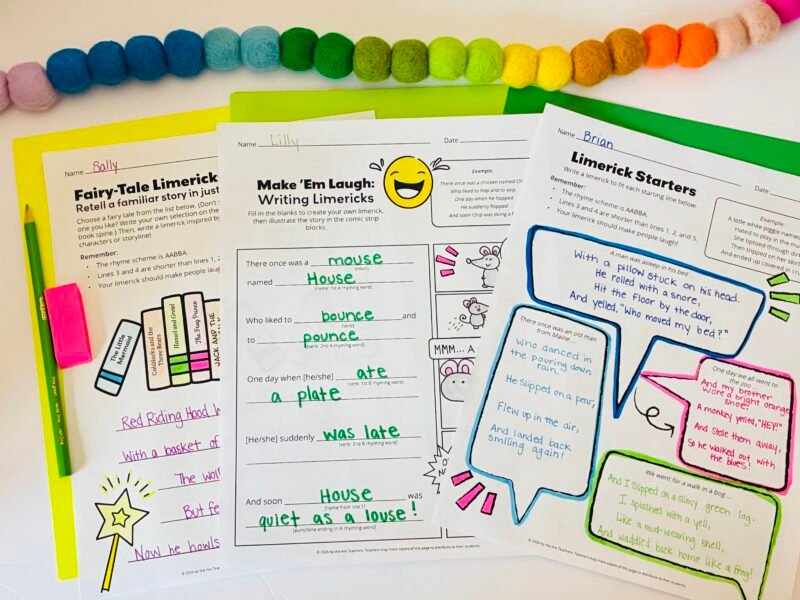 Name Sally
Fairy-Tale Limerick
Retell a familiar story in just
Choose a fairy tale from the list below. (Don't
one you like? Write your own selection on the
book spine.) Then, write a limerick inspired by
characters or storyline!
Remember:
• The rhyme scheme is AABBA.
• Lines 3 and 4 are shorter than lines 1, 2,
• Your limerick should make people laugh!
The Little Mermaid
Goldilocks and the Three Bears
Hansel and Gretel
The Frog Prince
JACK AND THE
Red Riding Hood
With a basket of
The wol
But fe
Now he howls
Name Lilly Date
Make 'Em Laugh:
Writing Limericks
Fill in the blanks to create your own limerick,
then illustrate the story in the comic strip
blocks.
Example:
There once was a chicken named
Who liked to hop and to skip.
One day when he hopped
He suddenly flopped
And soon Chip was doing a
There once was a mouse
(noun)
named House
(name: 1st A rhyming word)
Who liked to bounce and
(verb)
to pounce
(verb: 2nd A rhyming word)
One day when [he/she] ate
(verb: 1st B rhyming word)
a plate
[He/she] suddenly was late
(verb: 2nd B rhyming word)
And soon House was
(name from line 1)
quiet as a louse!
(punchline ending in A rhyming word)
MMM... A
Name Brian
Date
Limerick Starters
Write a limerick to fit each starting line below.
Remember:
• The rhyme scheme is AABBA.
• Lines 3 and 4 are shorter than lines 1, 2, and 5.
• Your limerick should make people laugh!
Example:
A little white piggie named
Hated to play in the
She tiptoed through
Then tripped on her
And ended up covered in
A man was asleep in his bed ...
With a pillow stuck on his head.
He rolled with a snore,
Hit the floor by the door,
And yelled, "Who moved my bed?"
There once was an old man
from Maine ...
Who danced in
the pouring down
rain.
He slipped on a pear,
Flew up in the air,
And landed back
smiling again!
One day we all went to
the zoo ...
And my brother
wore a bright orange
shoe!
A monkey yelled, "HEY!"
And stole them away,
So he walked out with
the blues!
We went for a walk in a bog ...
And I slipped on a slimy green log.
I splashed with a yell,
Like a mud-wearing shell,
And waddled back home like a frog!
© 2026 by the We Are Teachers. Teachers may make copies of this page to distribute to their students.